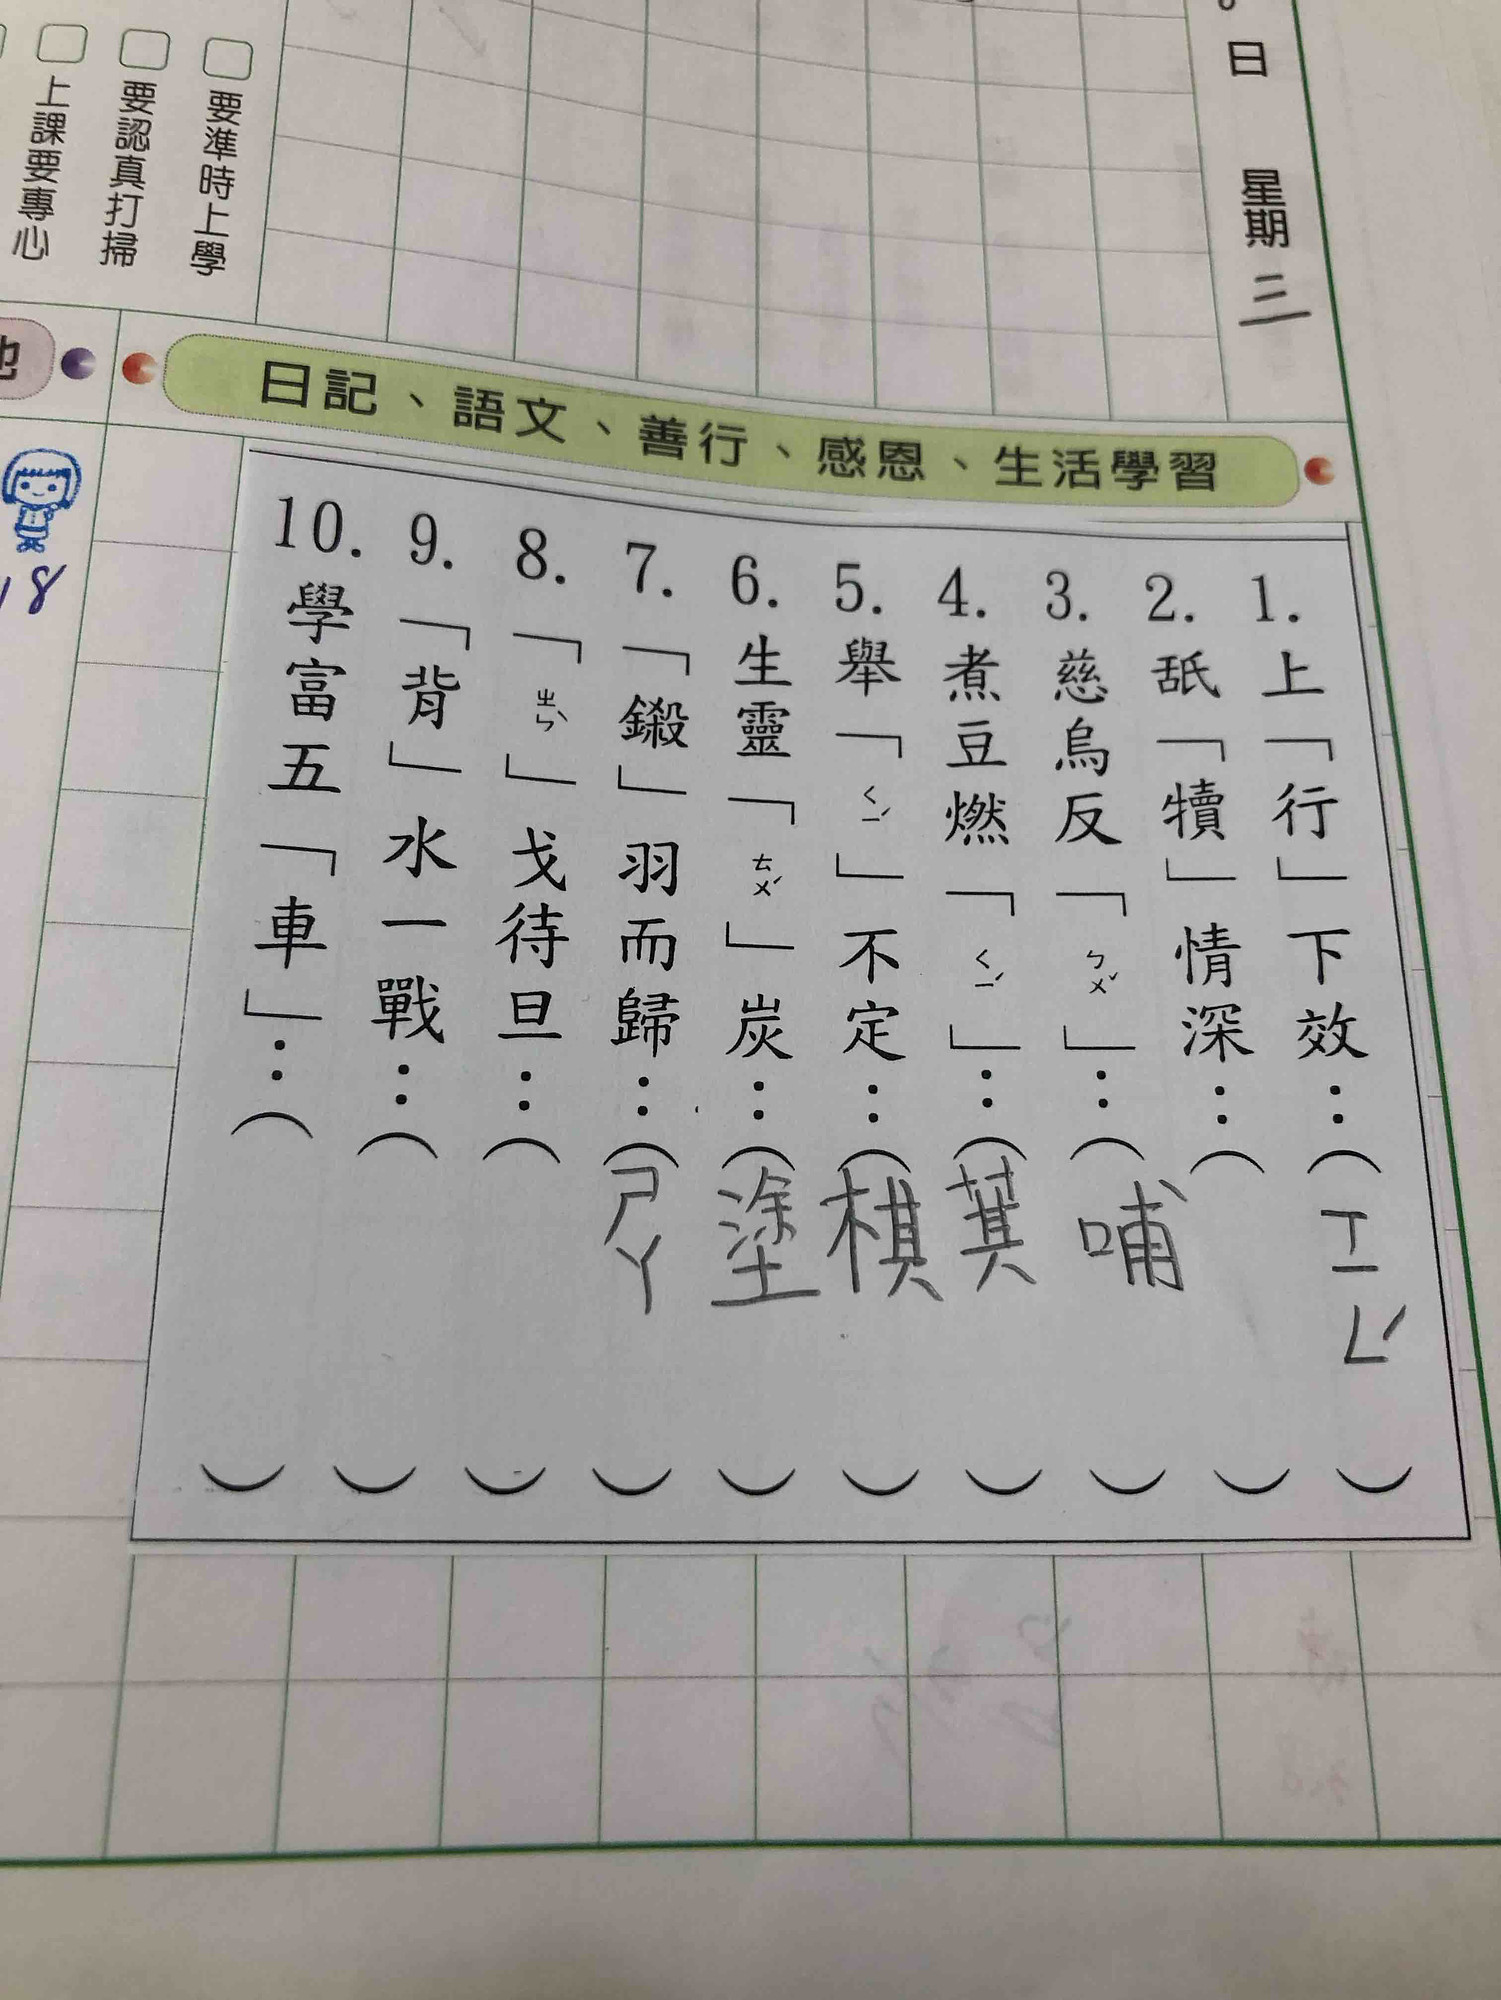 日
星期三
要準時上學
要認真打掃
上課要專心
日記、語文、善行、感恩、生活學習
1.上「行」下效：(ㄒㄧㄥˊ)
2.舐「犢」情深：( )
3.慈烏反「ㄅㄨˇ」：(哺)
4.煮豆燃「ㄑㄧˊ」：(萁)
5.舉「ㄑㄧˊ」不定：(棋)
6.生靈「ㄊㄨˊ」炭：(塗)
7.「鎩」羽而歸：(ㄕㄚ)
8.「ㄓㄣˇ」戈待旦：( )
9.「背」水一戰：( )
10.學富五「車」：( )
18